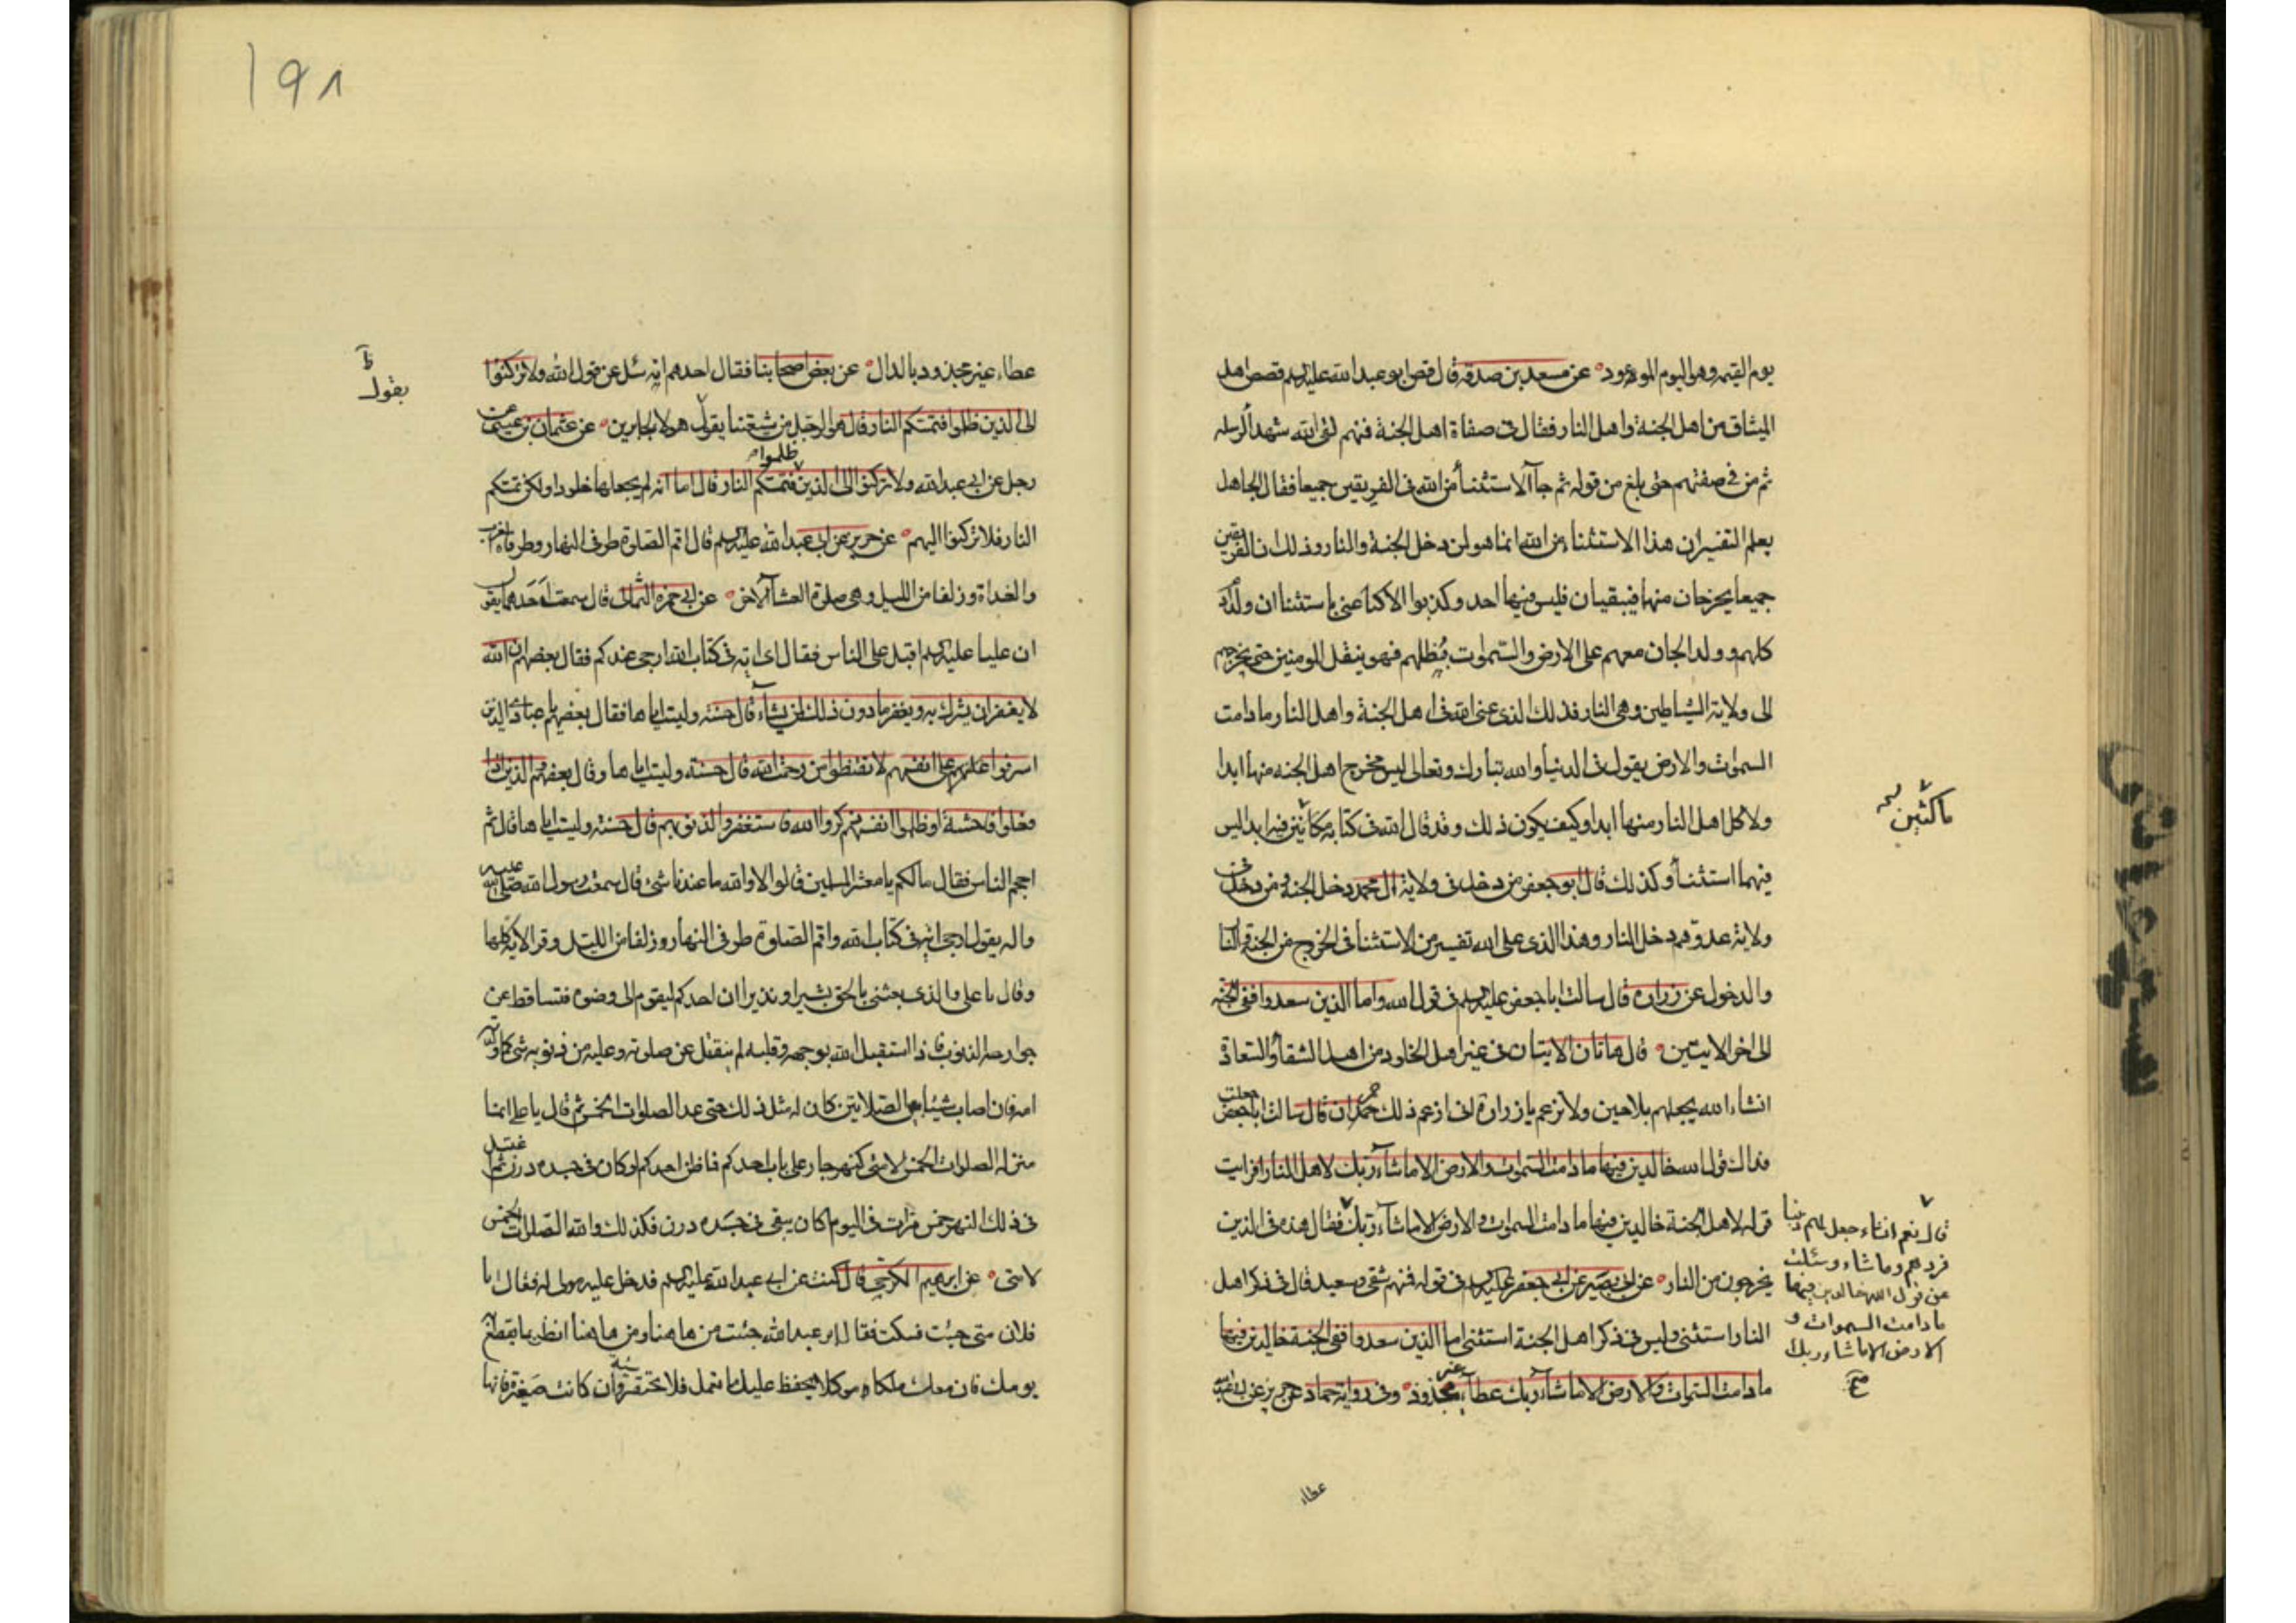 يوم القيمه وهو اليوم الموعود عن مسعده بن صدقه قال قص ابو عبد الله عليه السلم قصص اهل
الميثاق من اهل الجنة واهل النار فقال فى صفاة اهل الجنة فمنهم لقى الله شهدا لرسله
ثم من فى صفتهم حتى بلغ من قوله ثم جآ الاستثنأ من الله فى الفريقين جميعا فقال الجاهل
بعلم التفسير ان هذا الاستثناء من الله انما هو لمن دخل الجنة والنار وذلك ان الفريقين
جميعا يخرجان منها فيبقيان فليس فيها احد وكذبوا لاكنا عنى باستثنا ان ولد
كلهم وولد الجان معهم على الارض والسموات تظلهم فهو ينقل المومنين حتى يخرجهم
الى ولاية الشياطين وهى النار فذلك الذى عنى الله فى اهل الجنة واهل النار ما دامت
السموات والارض يقول فى الدنيا والله تبارك وتعالى ليس مخرج اهل الجنه منها ابدا
ولا كل اهل النار منها ابدا وكيف يكون ذلك وقد قال الله فى كتابه ماكثين فيه ابدا ليس
ماكثين
فيهما استثنأ وكذلك قال ابو جعفر من دخل فى ولاية ال محمد دخل الجنة ومن دخل فى
ولاية عدوهم دخل النار وهذا الذى على الله تفسير من الاستثنا فى الخروج من الجنة والنا
والدخول عن زراره قال سالت ابا جعفر عليه السلم فى قول الله واما الذين سعدوا ففى الجنه
الى اخر الايتين قال هاتان الايتان فى غير اهل الخلود من اهل الشقأ والسعادة
انشاء الله يجعلهم بلاحين ولا تزعم يا زرارة انى ازعم ذلك حمران قال سالت ابا جعفر جعلت
فداك قول الله خالدين فيها ما دامت السموات والارض الا ما شآء ربك لاهل النار افرايت
قوله لاهل الجنة خالدين فيها ما دامت السموات والارض الا ما شآء ربك فقال هذه فى الذين
قال نعم انشاء جعل لهم دنيا
فردهم وما شاء وسئلت
عن قول الله خالدين فيها
ما دامت السموات و
الارض الا ما شاء ربك
صح
يخرجون من النار عن ابى بصير عن ابى جعفر عليه السلم فى قوله فمنهم شقى وسعيد قال فى ذكر اهل
النار استثنى وليس فى ذكر اهل الجنة استثنى اما الذين سعدوا ففى الجنة خالدين فيها
ما دامت السموات والارض الا ما شآء ربك عطآء غير مجذوذ وفى رواية حماد عن حريز عن ابى عبد الله
عطاء
١٩٨
عطاء غير مجذود بالدال عن بعض اصحابنا فقال احدهم انه سئل عن قول الله ولا تركنوا
يقول
الى الذين ظلموا فتمسكم النار قال هو الرجل من شيعتنا يقول هولاء الجابرين عن عثمان بن عيسى عن
رجل عن ابى عبد الله ولا تركنوا الى الذين ظلموا فتمسكم النار قال اما انه لم يجعلها خلودا ولكن تمسكم
النار فلا تركنوا اليهم عن حريز عن ابى عبد الله عليه السلم قال اقم الصلوة طرفى النهار وطرفاه المغرب
والغداة وزلفا من الليل وهى صلوة العشآ الاخر عن ابى حمزه الثمالى قال سمعت احدهما يقول
ان عليا عليه السلم اقبل على الناس فقال اى اية فى كتاب الله ارجى عندكم فقال بعضهم ان الله
لا يغفر ان يشرك به ويغفر ما دون ذلك لمن يشآء قال حسنة وليست اياها فقال بعضهم يا عبادى الذين
اسرفوا على انفسهم لا تقنطوا من رحمت الله قال حسنة وليست اياها وقال بعضهم الذين اذا
فعلوا فاحشة او ظلموا انفسهم ذكروا الله فاستغفروا لذنوبهم قال حسنة وليست اياها قال ثم
احجم الناس فقال مالكم يا معشر المسلمين قالوا لا والله ما عندنا شئ قال سمعت رسول الله صلى الله عليه
واله يقول ارجى اية فى كتاب الله واقم الصلوة طرفى النهار وزلفا من الليل وقرا الاية كلها
وقال يا على والذى بعثنى بالحق بشيرا ونذيرا ان احدكم ليقوم الى وضوه فتساقط عن
جوارحه الذنوب فاذا استقبل الله بوجهه وقلبه لم ينفتل عن صلوته وعليه من ذنوبه شئ كما ولدته
امه فان اصاب شيئا بين الصلاتين كان له مثل ذلك حتى عد الصلوات الخمس ثم قال يا على انما
منزله الصلوات الخمس لامتى كنهر جار على باب احدكم فما ظن احدكم لو كان فى جسده درن ثم اغتسل
فى ذلك النهر خمس مرات فى اليوم اكان يبقى فى جسده درن فكذلك والله الصلوات الخمس
لامتى عن ابرهيم الكرخى قال كنت عن ابى عبد الله عليه السلم فدخل عليه مولى له فقال يا
فلان متى جئت فسكت فقال ابو عبد الله جئت من هاهنا ومن هاهنا انظر بما يقطع
يومك فان معك ملكا موكلا يحفظ عليك ما تعمل فلا تحتقر سيئة وان كانت صغيرة فانها